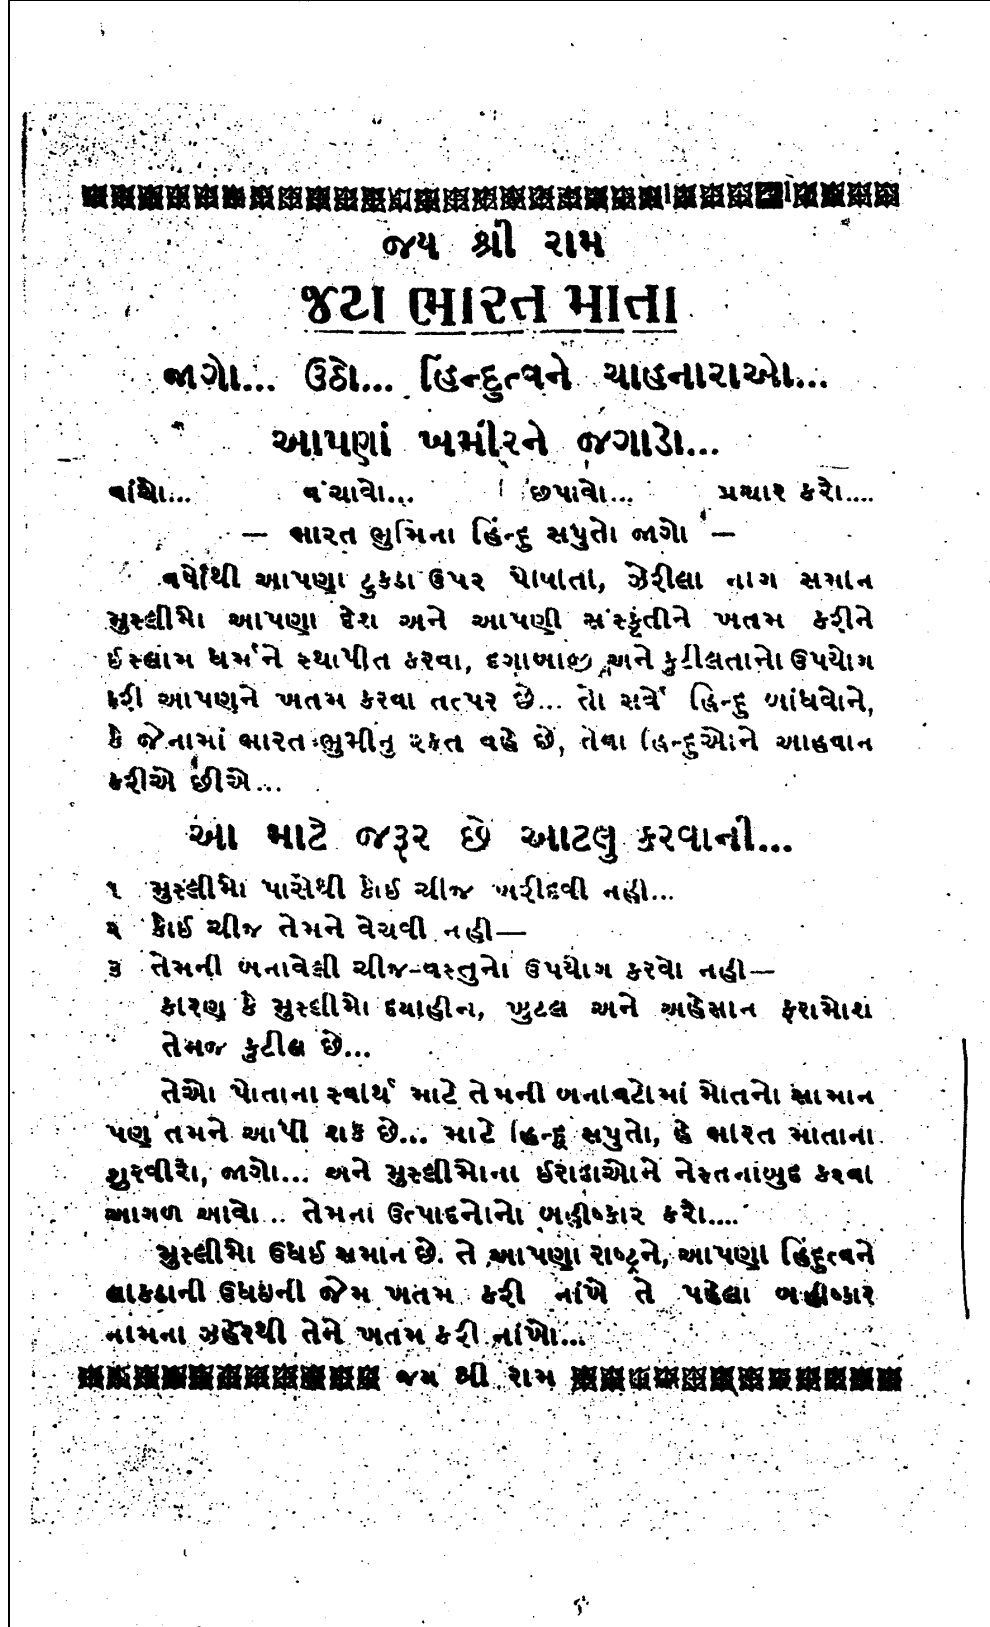 જય શ્રી રામ
જટા ભારત માતા
જાગો... ઉઠો... હિન્દુત્વને ચાહનારાઓ...
આપણાં ખમીરને જગાડો...
વાંચો... વંચાવો... છપાવો... પ્રચાર કરો....
— ભારત ભુમિના હિન્દુ સપુતો જાગો —
વર્ષોથી આપણા ટુકડા ઉપર પોષાતા, ઝેરીલા નાગ સમાન
મુસ્લીમો આપણા દેશ અને આપણી સંસ્કૃતીને ખતમ કરીને
ઈસ્લામ ધર્મને સ્થાપીત કરવા, દગાબાજી અને કુટીલતાનો ઉપયોગ
કરી આપણને ખતમ કરવા તત્પર છે... તો સર્વે હિન્દુ બાંધવોને,
કે જેનામાં ભારત ભુમીનુ રકત વહે છે, તેવા હિન્દુઓને આહવાન
કરીએ છીએ...
આ માટે જરૂર છે આટલુ કરવાની...
૧ મુસ્લીમો પાસેથી કોઈ ચીજ ખરીદવી નહી...
૨ કોઈ ચીજ તેમને વેચવી નહી—
૩ તેમની બનાવેલી ચીજ-વસ્તુનો ઉપયોગ કરવો નહી—
કારણ કે મુસ્લીમો દયાહીન, ખુટલ અને અહેસાન ફરામોશ
તેમજ કુટીલ છે...
તેઓ પોતાના સ્વાર્થ માટે તેમની બનાવટોમાં મોતનો સામાન
પણ તમને આપી શકે છે... માટે હિન્દૂ સપુતો, હે ભારત માતાના
શુરવીરો, જાગો... અને મુસ્લીમોના ઈરાદાઓને નેસ્તનાબુદ કરવા
આગળ આવો... તેમના ઉત્પાદનોનો બહીષ્કાર કરો....
મુસ્લીમો ઉધઈ સમાન છે. તે આપણા રાષ્ટ્રને, આપણા હિંદુત્વને
લાકડાની ઉધઇની જેમ ખતમ કરી નાંખે તે પહેલા બહીષ્કાર
નામના ઝહેરથી તેને ખતમ કરી નાંખો...
જય શ્રી રામ